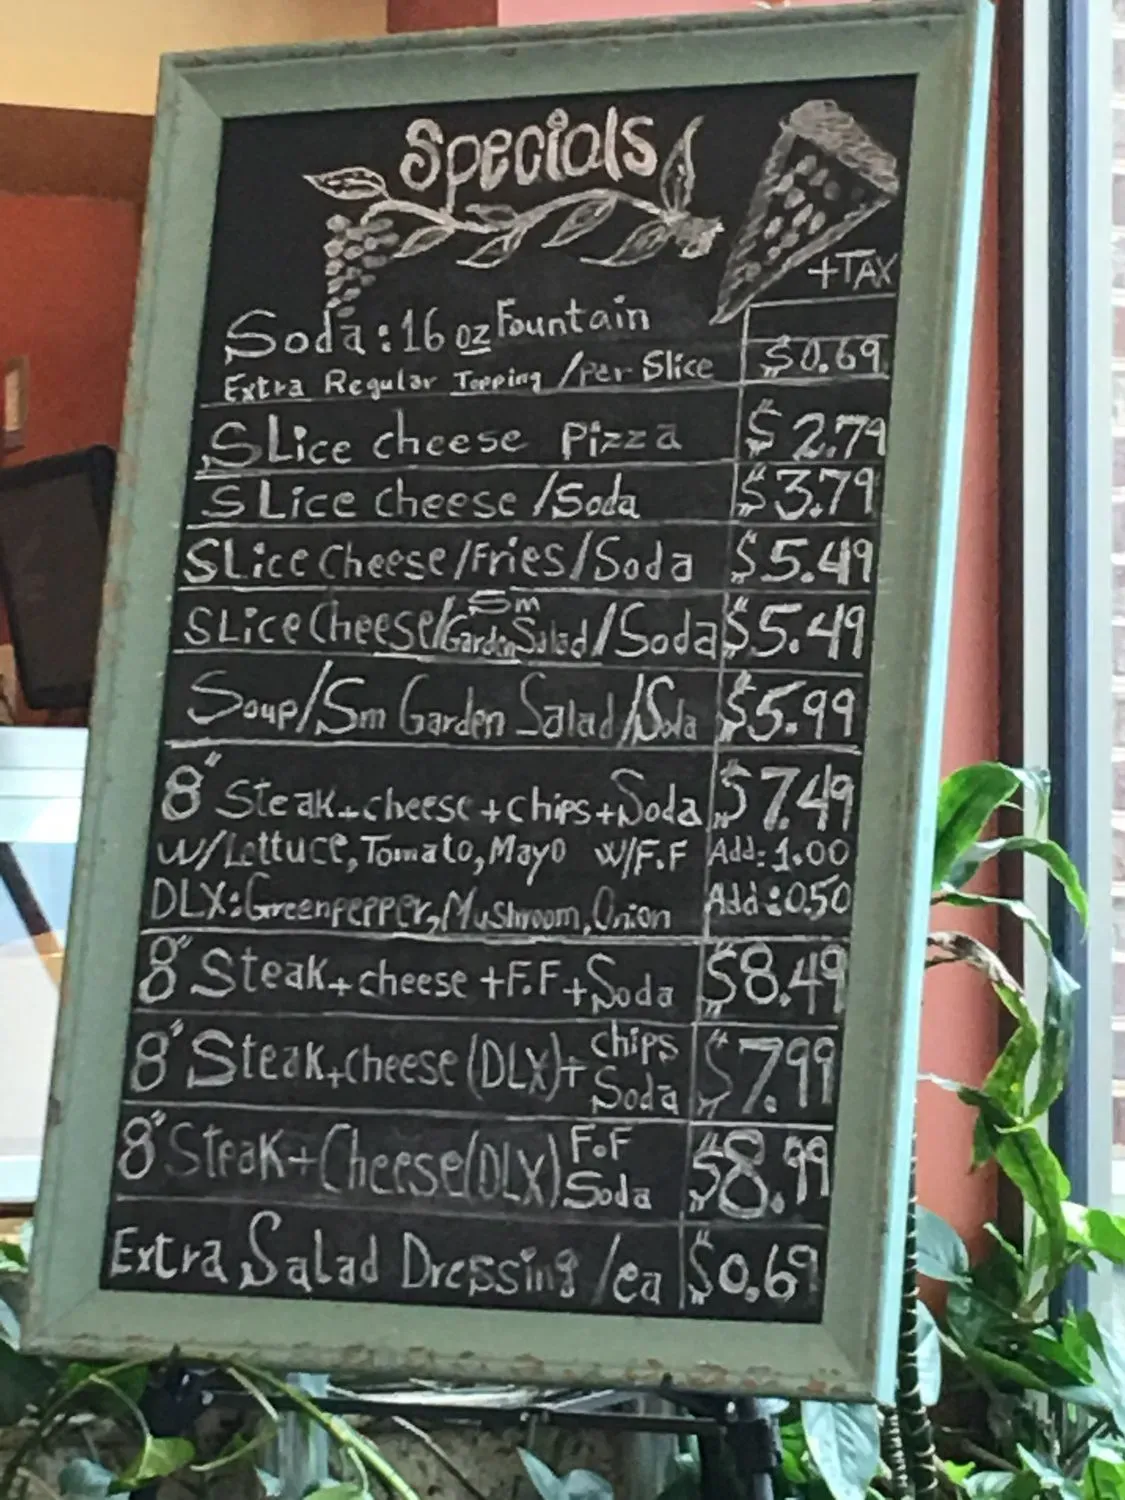 Specials
+TAX
Soda: 16 oz Fountain
Extra Regular Topping /per Slice $0.69
SLice cheese Pizza $2.79
SLice cheese /Soda $3.79
SLice Cheese/Fries/Soda $5.49
SLice Cheese/Sm Garden Salad/Soda $5.49
Soup/Sm Garden Salad/Soda $5.99
8" Steak+cheese+chips+Soda $7.49
w/Lettuce, Tomato, Mayo W/F.F Add: 1.00
DLX: Greenpepper, Mushroom, Onion Add: 0.50
8" Steak+cheese+F.F+Soda $8.49
8" Steak+cheese (DLX)+ chips Soda $7.99
8" Steak+Cheese (DLX) F.F Soda $8.99
Extra Salad Dressing /ea $0.69